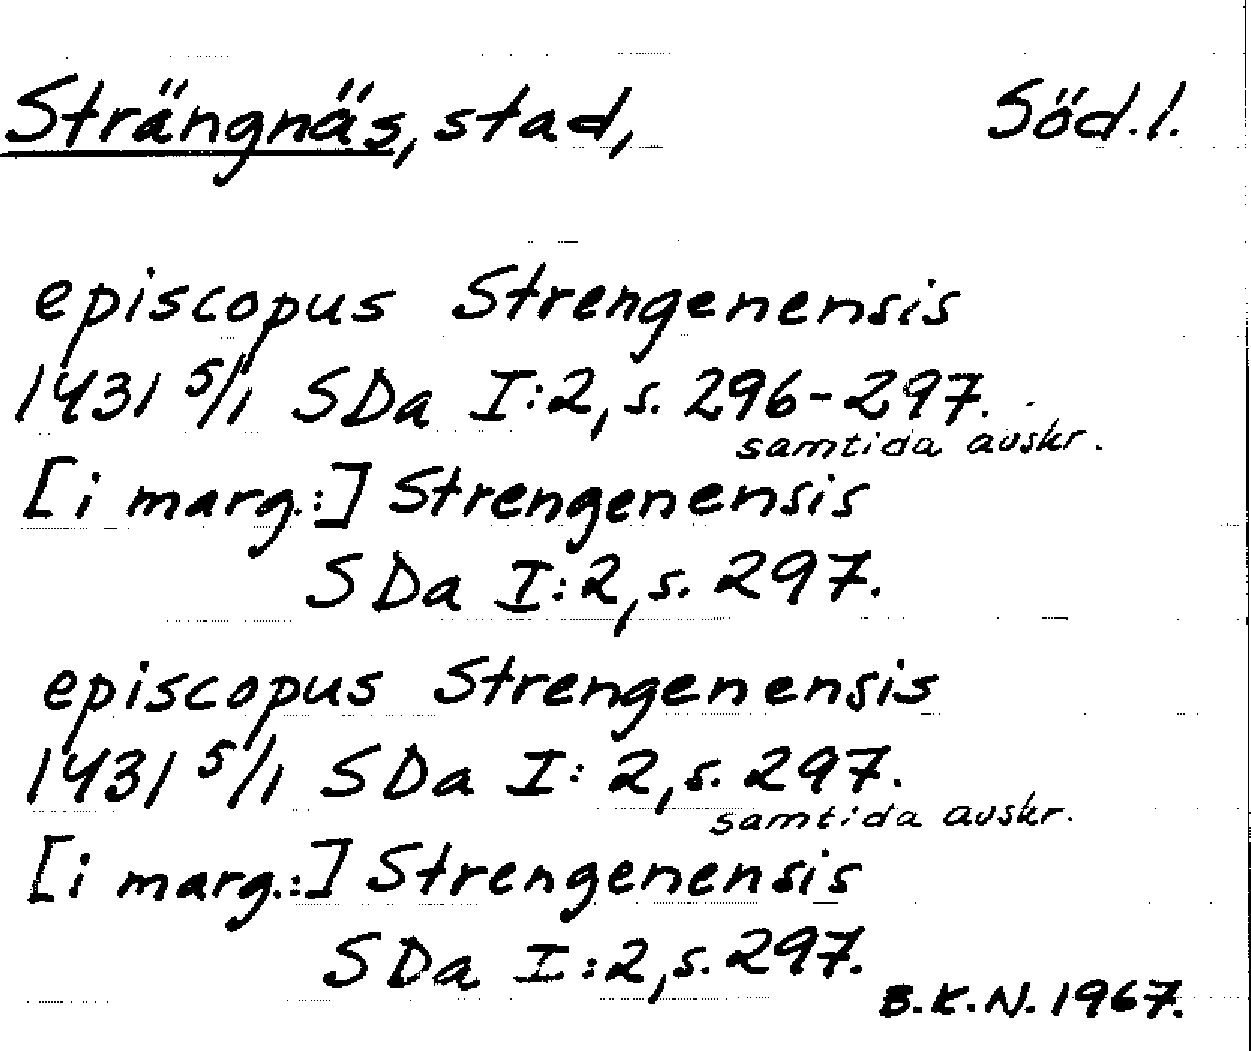 Strängnäs, stad, Söd.l.
episcopus Strengenensis
1431 5/1 SDa I:2, s. 296-297.
samtida avskr.
[i marg.:] Strengenensis
SDa I:2, s. 297.
episcopus Strengenensis
1431 5/1 SDa I:2, s. 297.
samtida avskr.
[i marg.:] Strengenensis
SDa I:2, s. 297.
B.K.N. 1967.